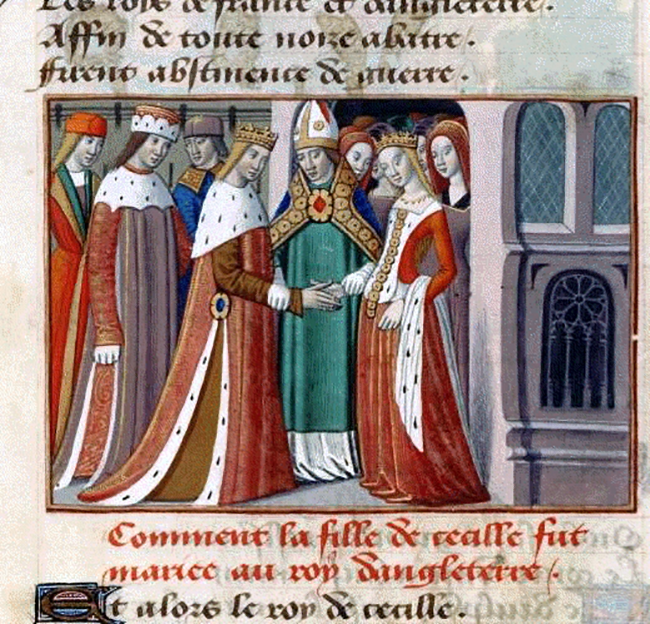 Les rois de france et dangleterre.
Affin de toute noize abatre.
Furent abstinence de guerre.
Comment la fille de cecille fut
mariee au roy dangleterre.
Et alors le roy de cecille.